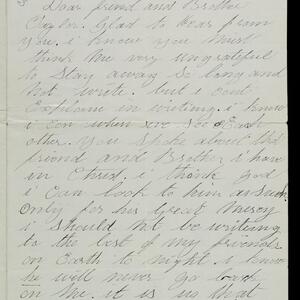 Dear friend and Brother
Taylor. Glad to hear from
you. i know you must
think me very ungrateful
to stay away so long and
not write. but i cant
Explane in writing. i know
i can when we see Each
other. You spoke about the
friend and Brother i have
in Christ. i thank god
i can look to him as such
Only for his great Mercy
i should not be writing
to the best of my friends
on Earth to night. i know
he will never go back
on me. it is us that